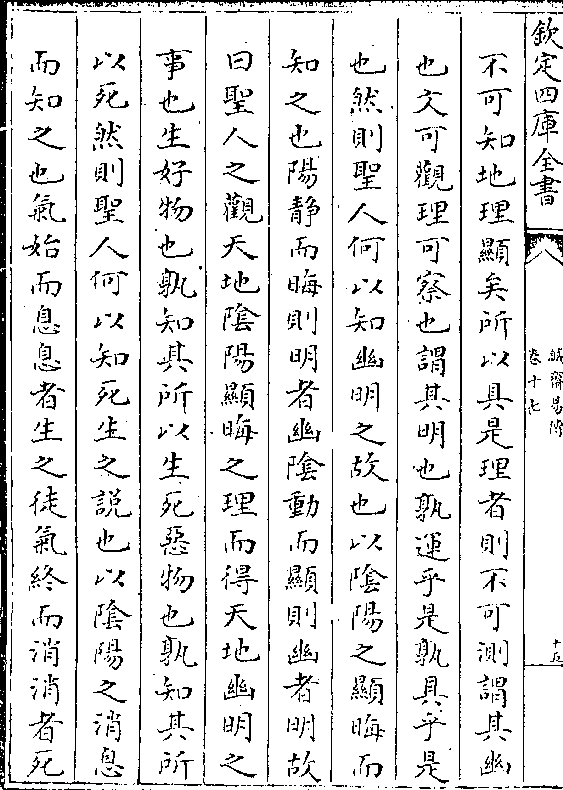 欽定四庫全書
誠齋易傳
卷十七
十五
不可知地理顯矣所以具是理者則不可測謂其幽
也文可觀理可察也謂其明也孰運乎是孰具乎是
也然則聖人何以知幽明之故也以陰陽之顯晦而
知之也陽静而晦則明者幽陰動而顯則幽者明故
曰聖人之觀天地陰陽顯晦之理而得天地幽明之
事也生好物也孰知其所以生死惡物也孰知其所
以死然則聖人何以知死生之説也以陰陽之消息
而知之也氣始而息息者生之徒氣終而消消者死